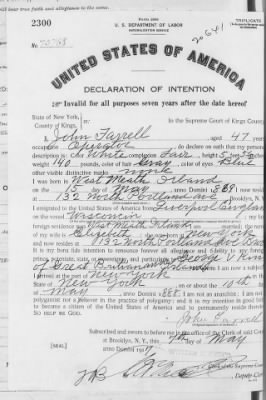 bear true faith and allegiance to the same.
2300
U. S. DEPARTMENT OF LABOR
NATURALIZATION SERVICE
No.
UNITED STATES OF AMERICA
DECLARATION OF INTENTION
Invalid for all purposes seven years after the date hereof
State of New York,
County of Kings,
In the Supreme Court of Kings County
I, John Farrell aged 47 years
occupation Operator do declare on oath that my personal
description is: Color White complexion Fair height 5 feet
weight 140 pounds, color of hair Gray color of eyes Blue
other visible distinctive marks none
I was born in West Meath Ireland
on the 15 day of May anno Domini
at 132 North Portland Ave Brooklyn, N.
emigrated to the United States of America from Liverpool England
on the vessel Wisconsin
foreign residence was West Meath Ireland
of my wife is
and now resides at 132 North Portland Ave
It is my bona fide intention to renounce forever all allegiance and fidelity to any foreign
prince, potentate, state, or sovereignty, and particularly to George V King
of Great Britain and Ireland of whom I am now a subject
arrived at the port of New York
State of New York on or about the 10th day
May anno Domini I am not an anarchist; I am not
polygamist nor a believer in the practice of polygamy; and it is my intention in good faith
to become a citizen of the United States of America and to permanently reside
John Farrell
Subscribed and sworn to before me in this office of the Clerk of said Court
at Brooklyn, N. Y., this day of May
anno Domini
[SEAL]
Clerk of the Supreme Court